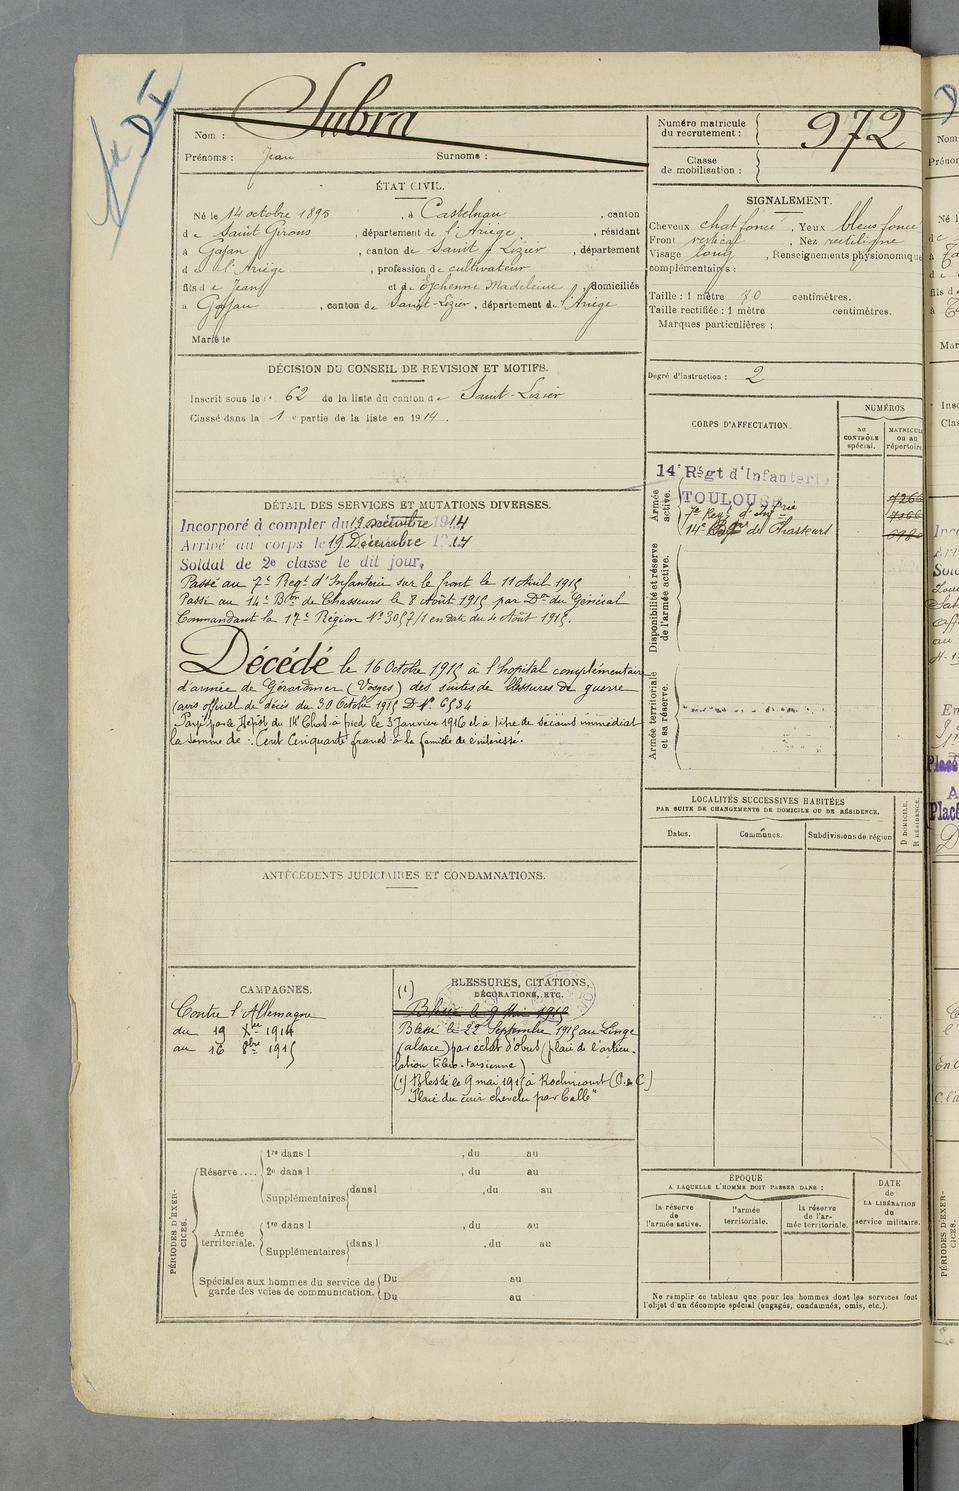 Nom : Subra
Prénoms : Jean Surnoms :
Numéro matricule du recrutement : 972
Classe de mobilisation :
ÉTAT CIVIL.
Né le 14 octobre 1895, à Castelnau, canton
de Saint Girons, département de l'Ariège, résidant
à Gajan, canton de Saint Lizier, département
de l'Ariège, profession de cultivateur
fils de Jean et de Madeleine, domiciliés
à Gajan, canton de Saint-Lizier, département de l'Ariège
Marié le
SIGNALEMENT.
Cheveux chat foncé, Yeux bleus foncé
Front vertical, Nez rectiligne
Visage long, Renseignements physionomiques
complémentaires :
Taille : 1 mètre 70 centimètres.
Taille rectifiée : 1 mètre centimètres.
Marques particulières :
Degré d'instruction : 2
DÉCISION DU CONSEIL DE REVISION ET MOTIFS.
Inscrit sous le no 62 de la liste du canton de Saint-Lizier
Classé dans la 1e partie de la liste en 1914.
CORPS D'AFFECTATION.
NUMÉROS
au CONTRÔLE spécial.
MATRICULE ou au répertoire
Armée active.
14e Régt d'Infanterie
TOULOUSE
7e Regt d'Infrie
14e Bon de Chasseurs
Disponibilité et réserve de l'armée active.
Armée territoriale et sa réserve.
DÉTAIL DES SERVICES ET MUTATIONS DIVERSES.
Incorporé à compter du 19 décembre 1914
Arrivé au corps le 19 Décembre 1914
Soldat de 2e classe le dit jour.
Passé au 7e Regt d'Infanterie sur le front le 11 Avril 1915
Passé au 14e Bon de Chasseurs le 8 Août 1915 par Don du Général
Commandant la 17e Région No 3057/1 en date du 4 Août 1915.
Décédé le 16 Octobre 1915 à l'hopital complémentaire
d'armée de Gérardmer (Vosges) des suites de blessures de guerre
(avis officiel de décès du 30 Octobre 1915 D No 6534
Payé par le Dépôt du 14e Chas. à pied le 3 Janvier 1916 et à titre de secours immédiat
la somme de : Cent Cinquante francs à la famille de l'intéressé.
LOCALITÉS SUCCESSIVES HABITÉES
PAR SUITE DE CHANGEMENTS DE DOMICILE OU DE RÉSIDENCE.
Dates. Communes. Subdivisions de région
D DOMICILE.
R RÉSIDENCE.
ANTÉCÉDENTS JUDICIAIRES ET CONDAMNATIONS.
CAMPAGNES.
Contre l'Allemagne
du 19 Xbre 1914
au 16 8bre 1915
BLESSURES, CITATIONS,
DÉCORATIONS, ETC.
(1)
Blessé le 9 Mai 1915
Blessé le 22 Septembre 1915 au Linge
(alsace) par éclat d'obus (plaie de l'articu-
lation tibio-tarsienne)
(1) Blessé le 9 mai 1915 à Roclincourt (P. de C)
"Plaie du cuir chevelu par balle"
PÉRIODES D'EXERCICES.
Réserve .... 1re dans l , du au
2e dans l , du au
Supplémentaires dans l , du au
Armée territoriale. 1re dans l , du au
Supplémentaires dans l , du au
Spéciales aux hommes du service de garde des voies de communication. Du au
Du au
ÉPOQUE
A LAQUELLE L'HOMME DOIT PASSER DANS :
la réserve de l'armée active.
l'armée territoriale.
la réserve de l'armée territoriale.
DATE de LA LIBÉRATION du service militaire.
Ne remplir ce tableau que pour les hommes dont les services font
l'objet d'un décompte spécial (engagés, condamnés, omis, etc.).